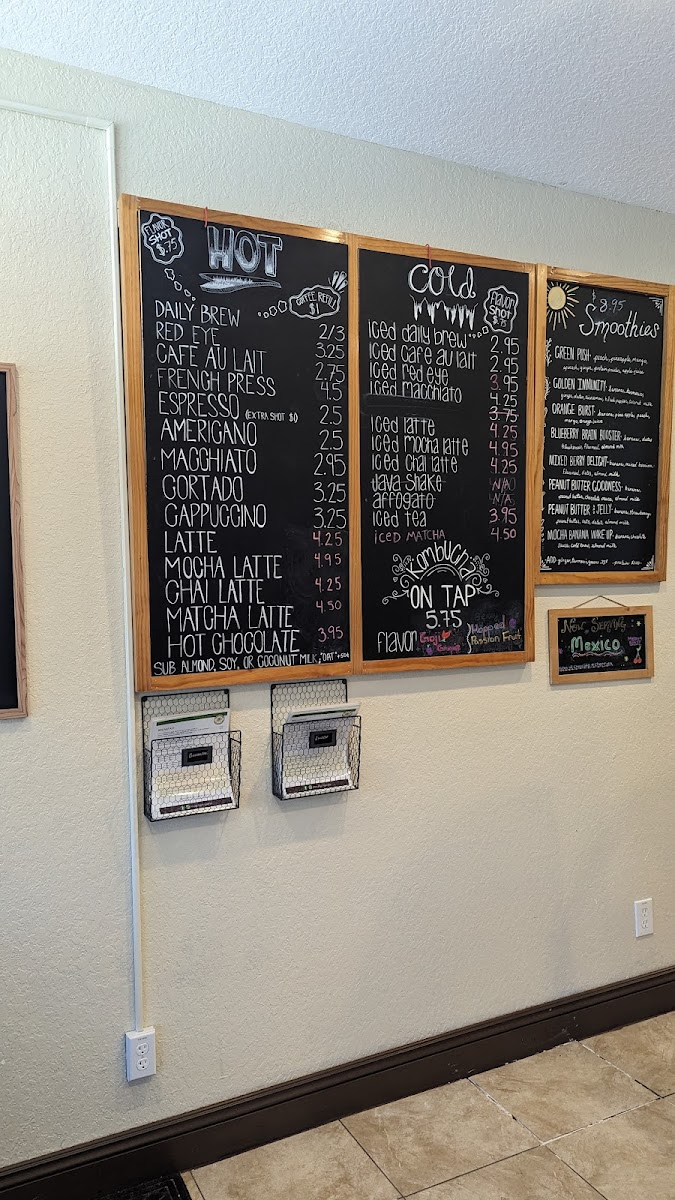 FLAVOR
SHOT
$.75
HOT
COFFEE REFILL
$1
DAILY BREW 2/3
RED EYE 3.25
CAFE AU LAIT 2.75
FRENCH PRESS 4.5
ESPRESSO (EXTRA SHOT $1) 2.5
AMERICANO 2.5
MACCHIATO 2.95
CORTADO 3.25
CAPPUCCINO 3.25
LATTE 4.25
MOCHA LATTE 4.95
CHAI LATTE 4.25
MATCHA LATTE 4.50
HOT CHOCOLATE 3.95
SUB ALMOND, SOY, OR COCONUT MILK, "OAT" +50¢
COLD
FLAVOR
SHOT
$.75
iced daily brew 2.95
iced cafe au lait 2.95
iced red eye 3.95
iced macchiato 4.25
3.75
iced latte 4.25
iced mocha latte 4.95
iced chai latte 4.25
Java Shake N/A
affogato N/A
iced tea 3.95
iCED MATCHA 4.50
Kombucha
ON TAP
5.75
FLAVOR Goji Ginger Hopped Passion Fruit
$8.95
Smoothies
GREEN PUSH- peach, pineapple, mango,
spinach, ginger, protein powder, apple juice
GOLDEN IMMUNITY- banana,
ORANGE BURST- banana, pine apple, peach,
mango, orange juice
BLUEBERRY BRAIN BOOSTER- banana,
MIXED BERRY DELIGHT-
almond milk
PEANUT BUTTER GOODNESS- banana,
peanut butter, almond milk
PEANUT BUTTER & JELLY- banana, strawberry,
peanut butter, almond milk
MOCHA BANANA WAKE UP-
almond milk
ADD-
NOW SERVING
Mexico